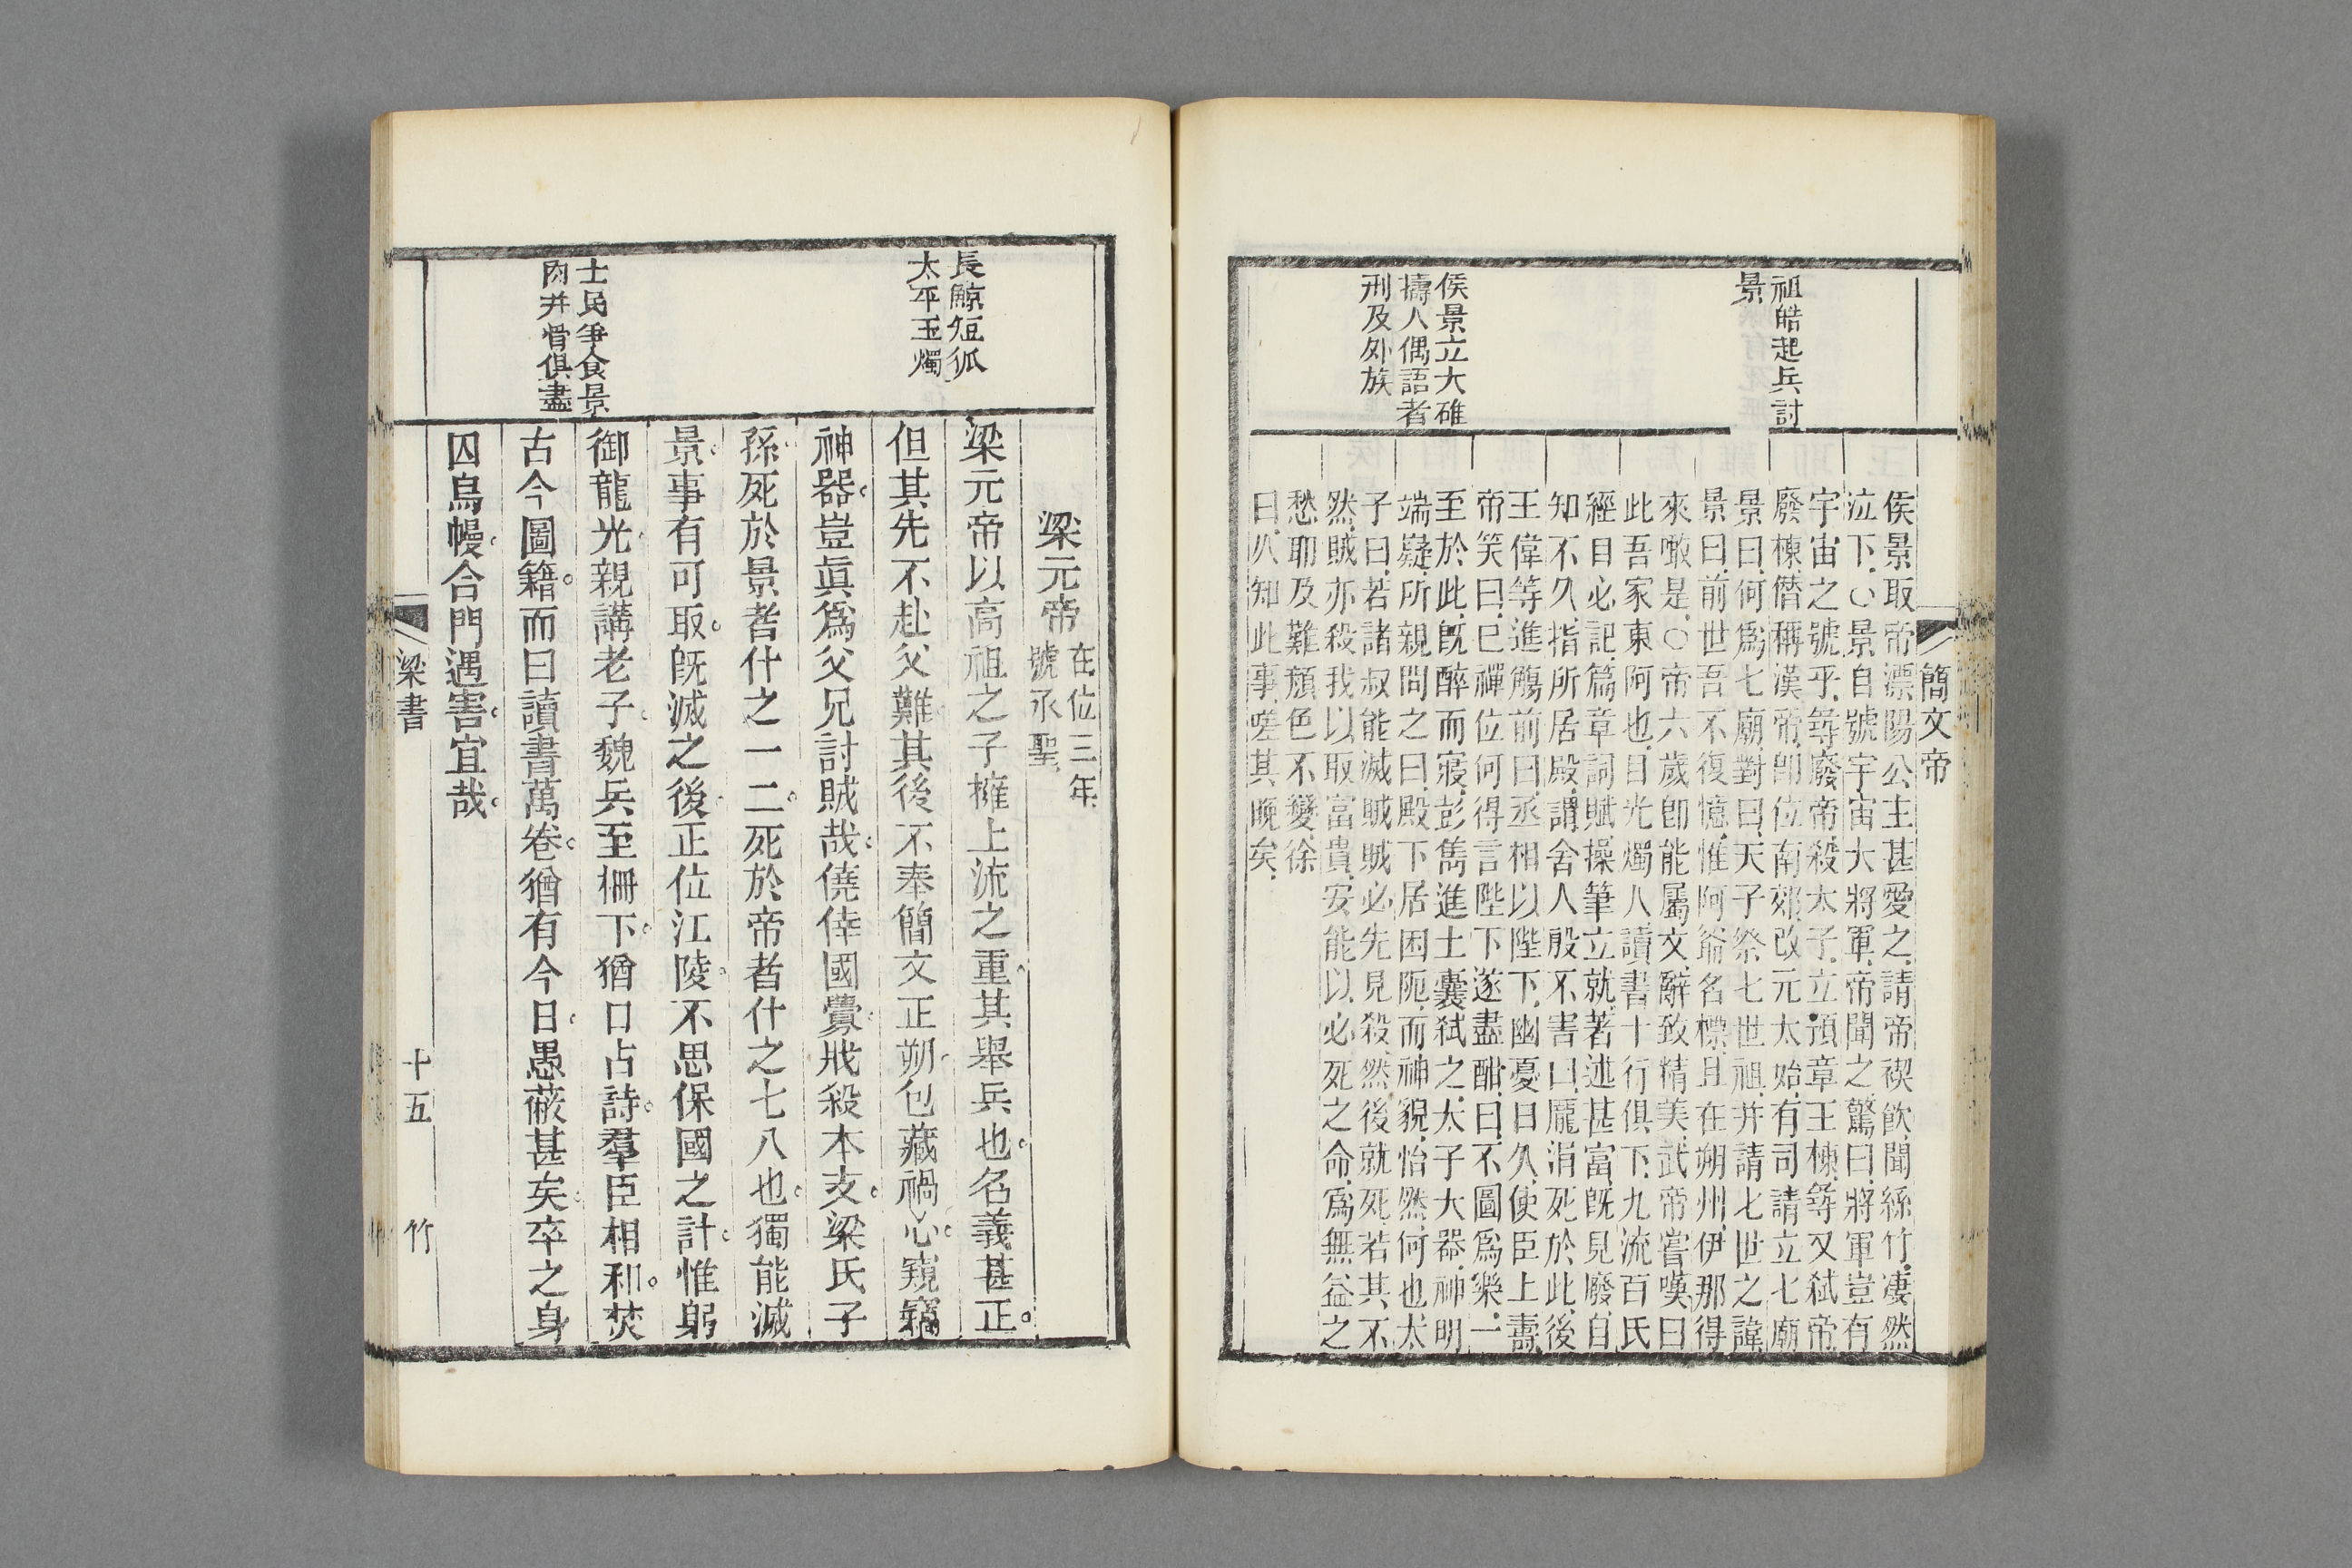 簡文帝
祖皓起兵討
景
侯景立大碓
擣人偶語者
刑及外族
侯景取帝溧陽公主甚愛之請帝禊飲聞絲竹凄然
泣下○景自號宇宙大將軍帝聞之驚曰將軍豈有
宇宙之號乎尋廢帝殺太子立預章王棟尋又弑帝
廢棟僭稱漢帝卽位南郊改元太始有司請立七廟
景曰何爲七廟對曰天子祭七世祖并請七世之諱
景曰前世吾不復憶惟阿爺名標且在朔州伊那得
來噉是○帝六歲卽能屬文辭致精美武帝嘗嘆曰
此吾家東阿也目光燭人讀書十行俱下九流百氏
經目必記篇章詞賦操筆立就著述甚富旣見廢自
知不久指所居殿謂舍人殷不害曰龐涓死於此後
王偉等進觴前曰丞相以陛下幽憂日久使臣上壽
帝笑曰已禪位何得言陛下遂盡酣曰不圖爲樂一
至於此旣醉而寢彭雋進土囊弑之太子大器神明
端嶷所親問之曰殿下居困阨而神貌怡然何也太
子曰若諸叔能滅賊賊必先見殺然後就死若其不
然賊亦殺我以取富貴安能以必死之命爲無益之
愁耶及難顏色不變徐
曰久知此事嗟其晚矣
長鯨短狐
太平玉燭
士民爭食景
肉并骨俱盡
梁元帝在位三年
號承聖
梁元帝以高祖之子擁上流之重其舉兵也名義甚正。
但其先不赴父難其後不奉簡文正朔包藏禍心窺竊
神器豈眞爲父兄討賊哉僥倖國釁戕殺本支梁氏子
孫死於景者什之一二死於帝者什之七八也獨能滅
景事有可取旣滅之後正位江陵不思保國之計惟躬
御龍光親講老子魏兵至柵下猶口占詩羣臣相和。焚
古今圖籍。而曰讀書萬卷猶有今日愚蔽甚矣卒之身
囚烏幔合門遇害宜哉
梁書
十五
竹